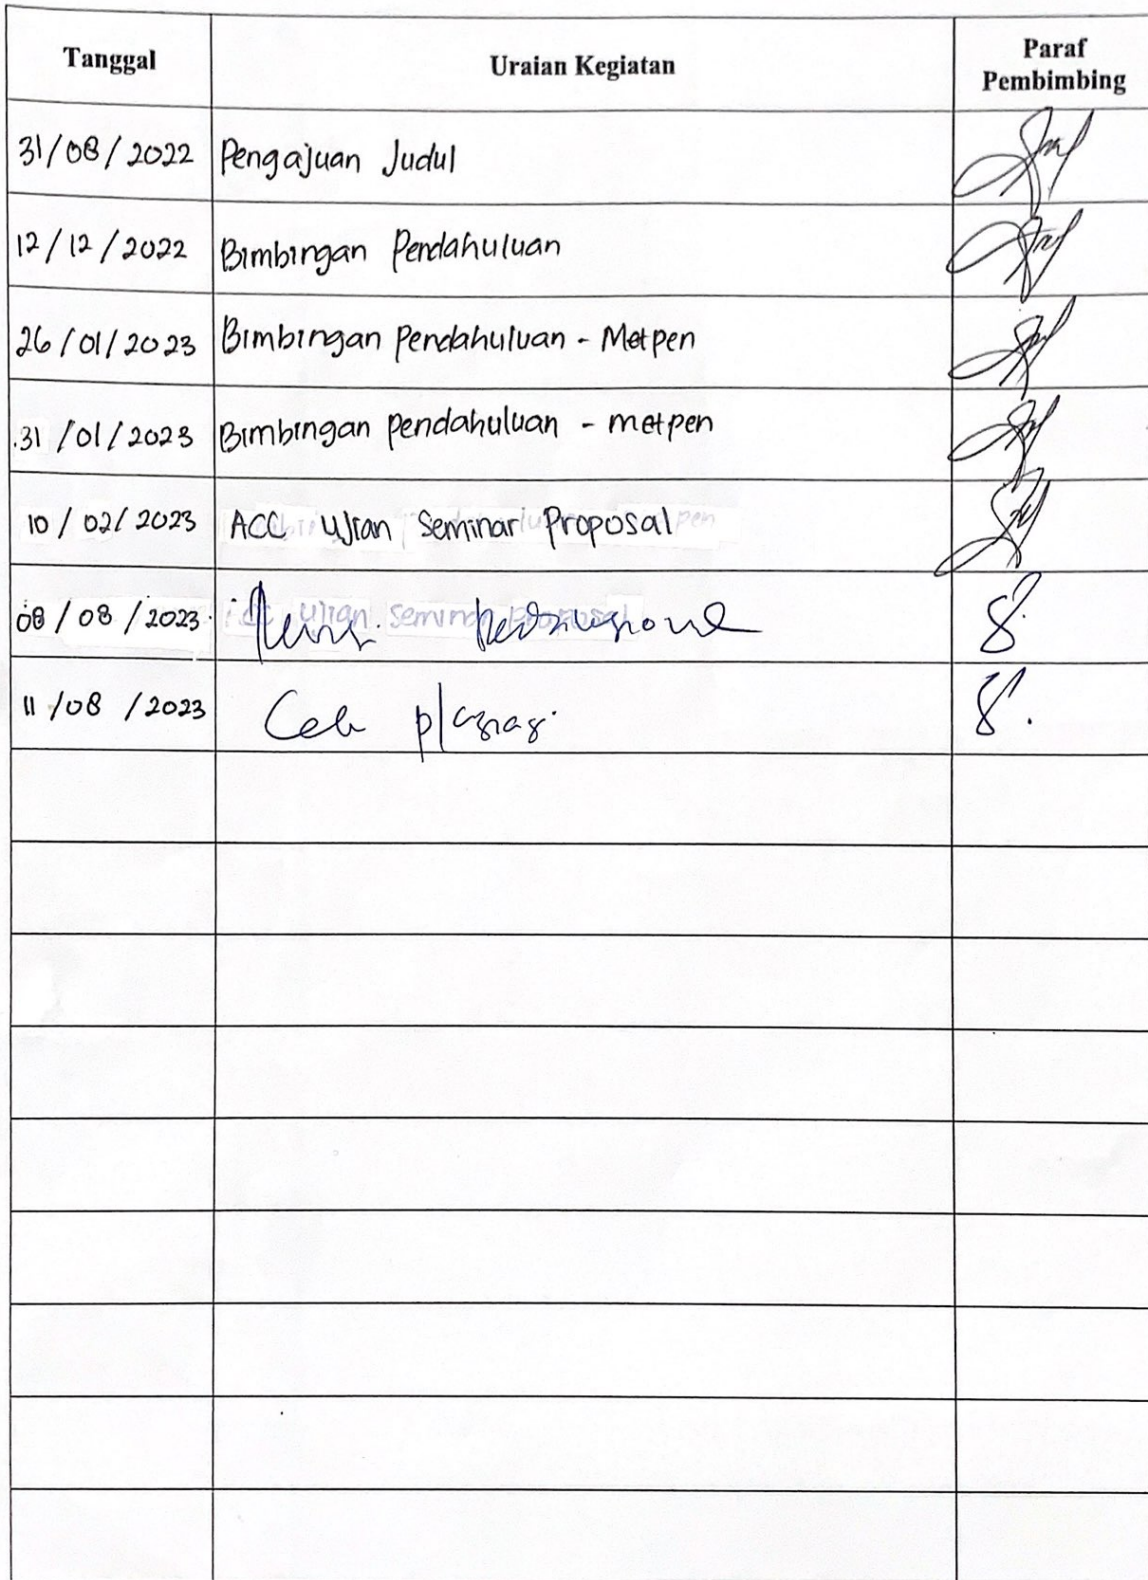 Tanggal
Uraian Kegiatan
Paraf
Pembimbing
31/08/2022 Pengajuan Judul
12/12/2022 Bimbingan Pendahuluan
26/01/2023 Bimbingan Pendahuluan - Metpen
31/01/2023 Bimbingan pendahuluan - metpen
10/02/2023 ACC Ujian Seminar Proposal
08/08/2023
11/08/2023 Cek plagiasi